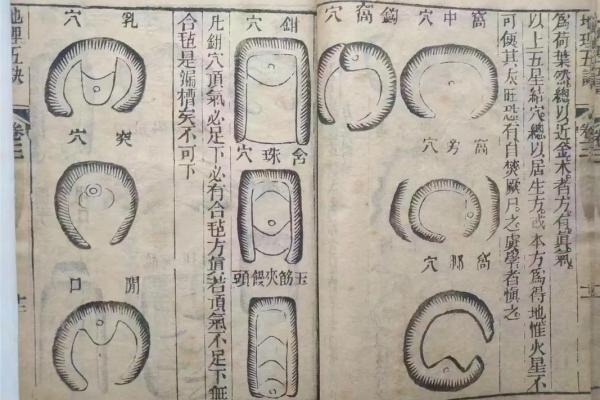 地理五訣
卷三
爲荷葉然總以近金木者方有眞氣
以上五星結穴總以居生方或本方爲得地惟火星不
可侵其灰旺恐有自焚厥尸之虞學者愼之
窩中穴
窩旁穴
窩邪穴
鈎窩穴
鉗穴
含珠穴
玉筋夾饅頭
凡鉗穴頂氣必足下必有合毡方眞若頂氣不足下無
合毡是漏槽矣不可下
乳穴
突穴
開口
地理五訣
卷三